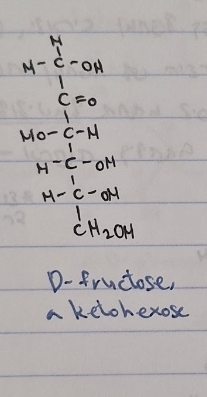 H
H-C-OH
C=O
HO-C-H
H-C-OH
H-C-OH
CH2OH
D-fructose,
a ketohexose